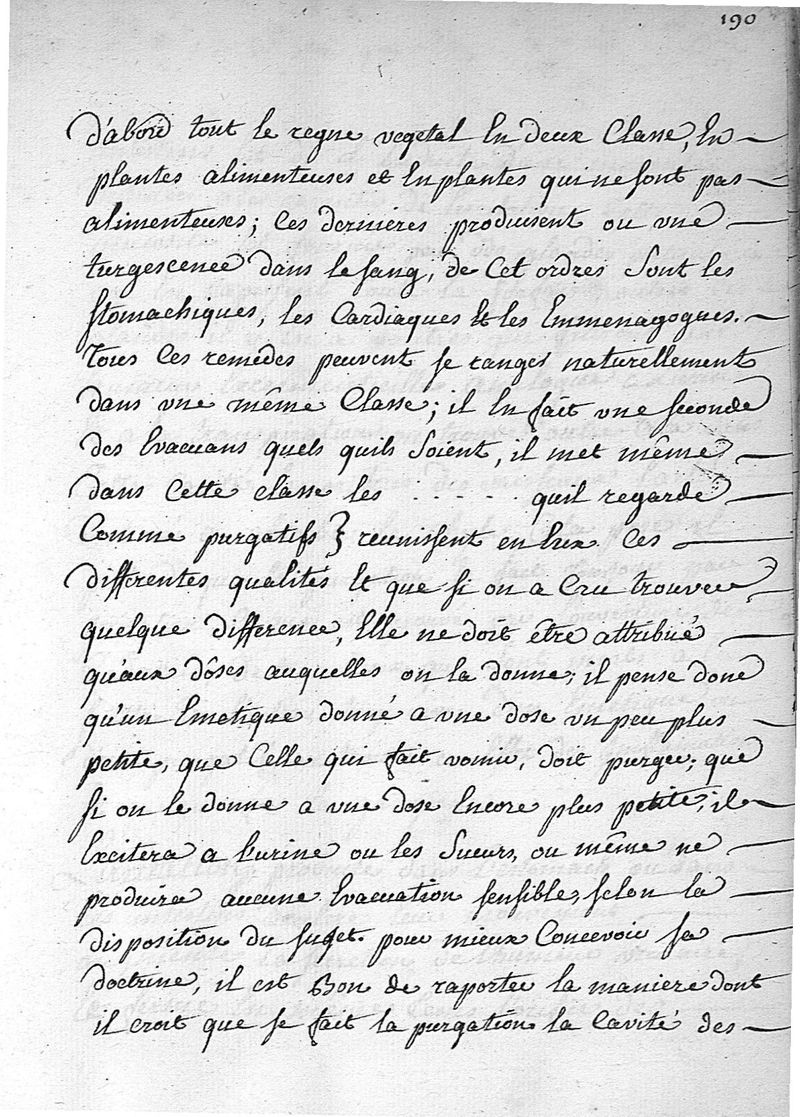 190
d'abord tout le regne vegetal En deux Classe, En
plantes alimenteuses et En plantes qui ne sont pas
alimenteuses; Ces dernieres produisent ou une
turgescence dans le sang, de Cet ordres Sont les
stomachiques, les Cardiaques Et les Emmenagogues.
Tous Ces remedes peuvent se ranger naturellement
dans une même Classe; il En fait une seconde
des Evacuans quels quils Soient, il met même
dans Cette classe les - - - - - quil regarde
Comme purgatifs } reunissent en Eux Ces
differentes qualités Et que si on a Cru trouver
quelque difference, Elle ne doit être attribué
qu'aux dôses auquelles on la donne; il pense donc
qu'un Emetique donné a une dose un peu plus
petite, que Celle qui fait vomir, doit purger; que
si on le donne a une dose Encore plus petite, il
Excitera a l'urine ou les Sueurs, ou même ne
produira aucune Evacuation sensible, selon la
disposition du sujet. pour mieux Concevoir sa
doctrine, il est Bon de raporter la maniere dont
il croit que se fait la purgation la Cavité des